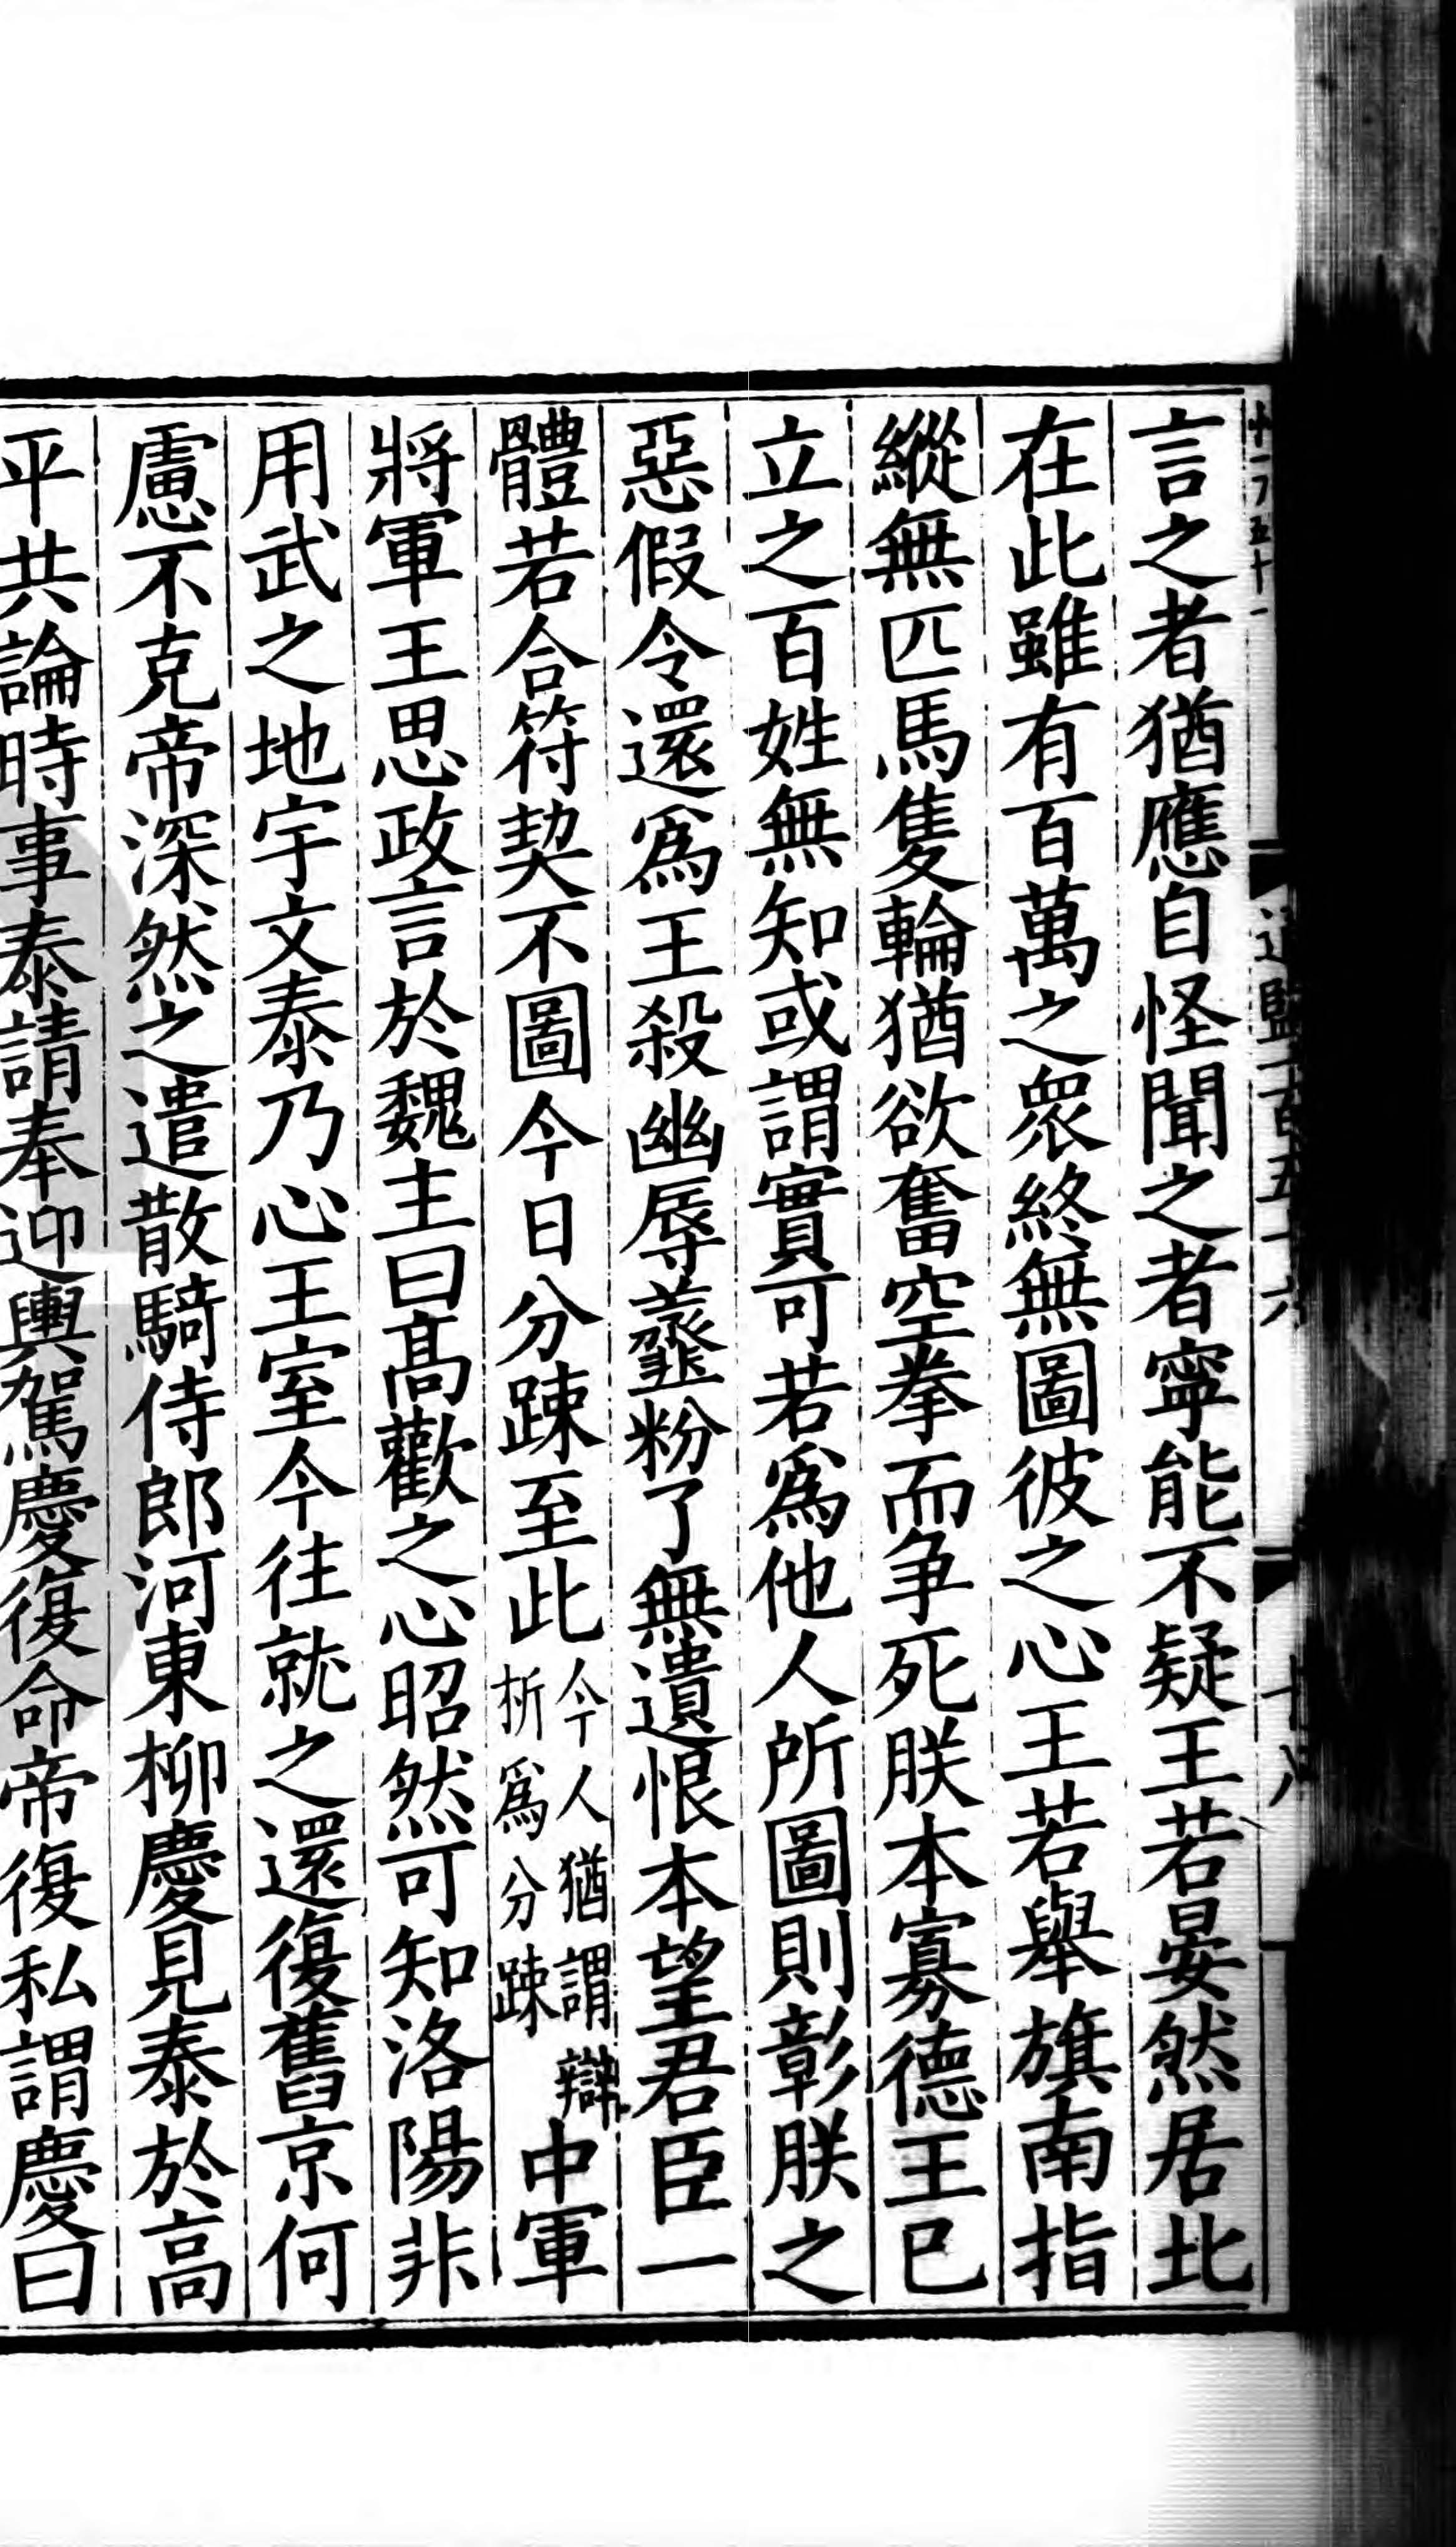 言之者猶應自怪聞之者寧能不疑王若晏然居北
在此雖有百萬之衆終無圖彼之心王若舉旗南指
縱無匹馬隻輪猶欲奮空拳而争死朕本寡德王已
立之百姓無知或謂實可若爲他人所圖則彰朕之
惡假令還爲王殺幽辱虀粉了無遺恨本望君臣一
體若合符契不圖今日分踈至此今人猶謂辯析爲分踈中軍
將軍王思政言於魏主曰髙歡之心昭然可知洛陽非
用武之地宇文泰乃心王室今往就之還復舊京何
慮不克帝深然之遣散騎侍郎河東柳慶見泰於高
平共論時事泰請奉迎輿駕慶復命帝復私謂慶曰